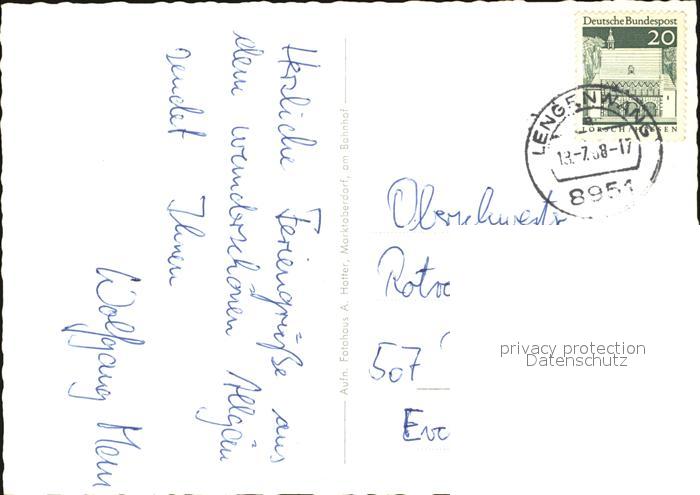 Herzliche Feriengrüße aus
dem wunderschönen Allgäu
sendet Ihnen
Wolfgang
Aufn. Fotohaus A. Hotter, Marktoberdorf, am Bahnhof
Deutsche Bundespost
20
LORSCH/HESSEN
LENGENWANG
8951
Oberschwester
507
privacy protection
Datenschutz